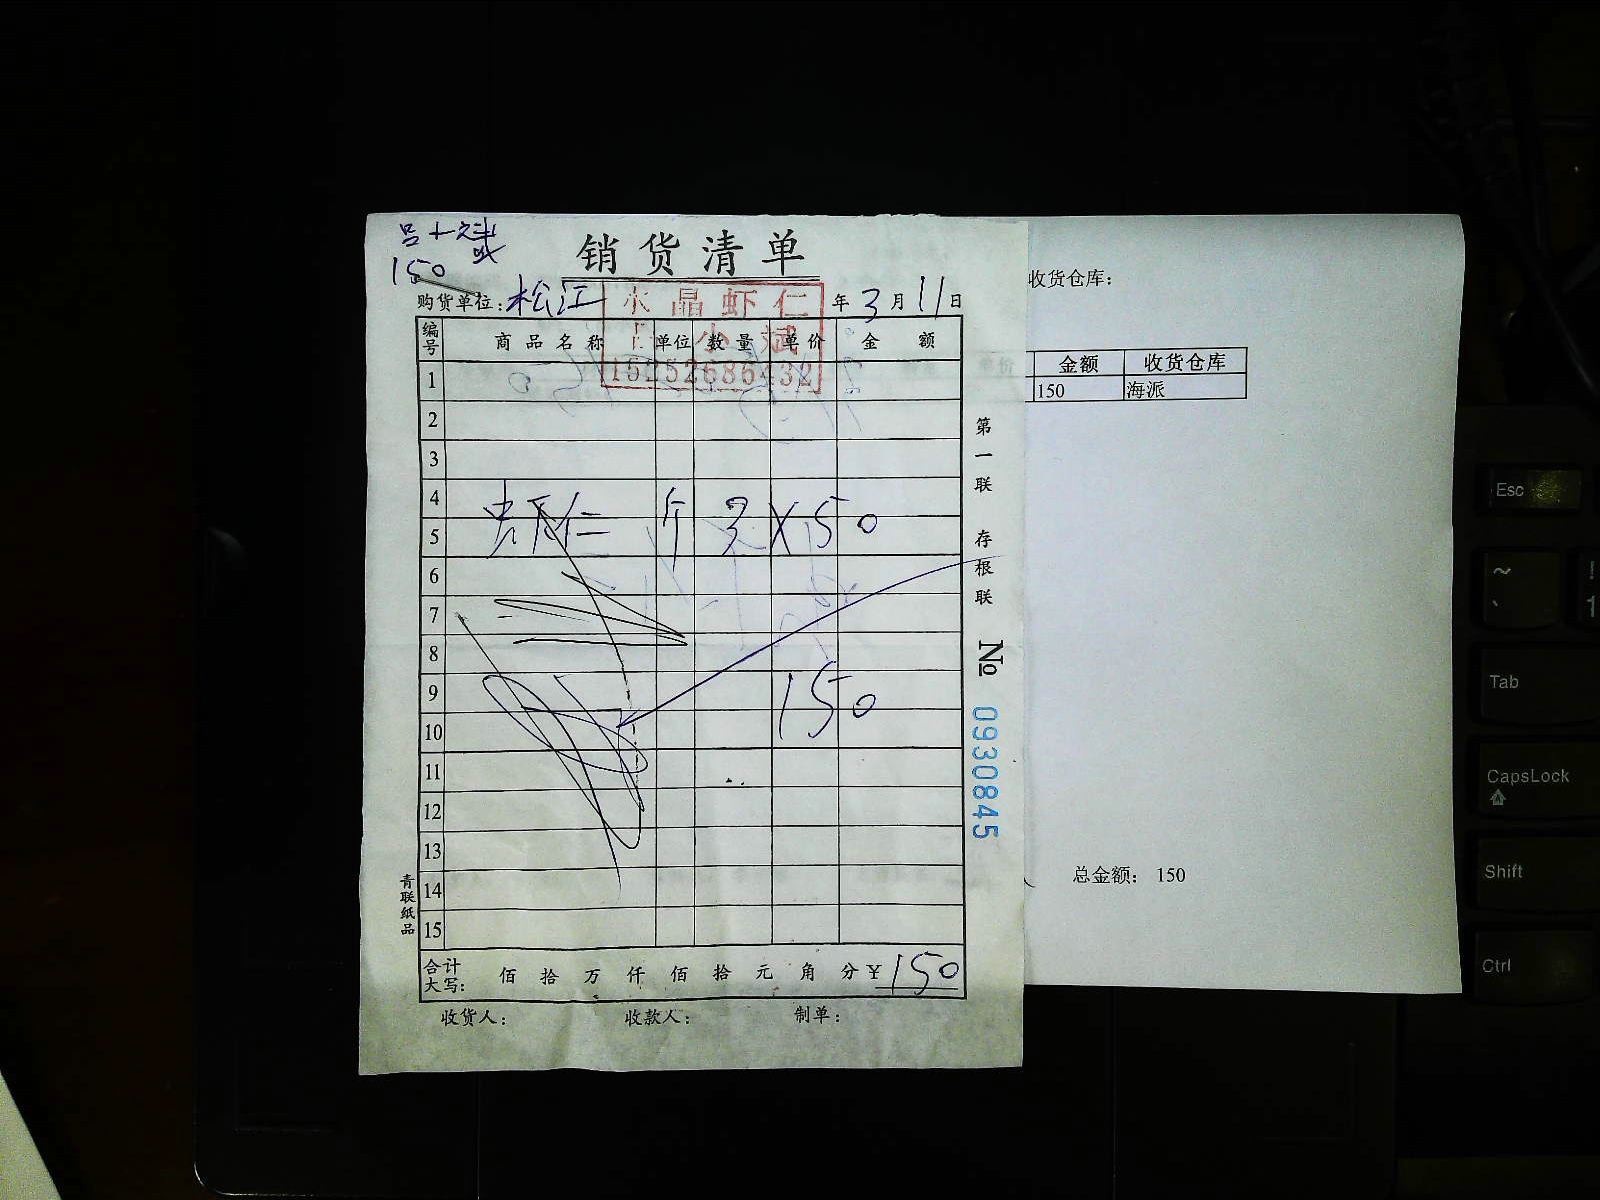 150
销货清单
购货单位：松江 年3月11日
水晶虾仁
小斌
15252686432
编号 商品名称 单位 数量 单价 金额
1
2
3
4
虾仁 斤 3×50
5
6
7
8
9
150
10
11
12
13
14
15
合计大写： 佰 拾 万 仟 佰 拾 元 角 分 ¥150
收货人： 收款人： 制单：
青联纸品
第一联 存根联
№ 0930845
收货仓库：
单价 金额 收货仓库
150 海派
总金额： 150
Esc
~
、
!
1
Tab
CapsLock
Shift
Ctrl